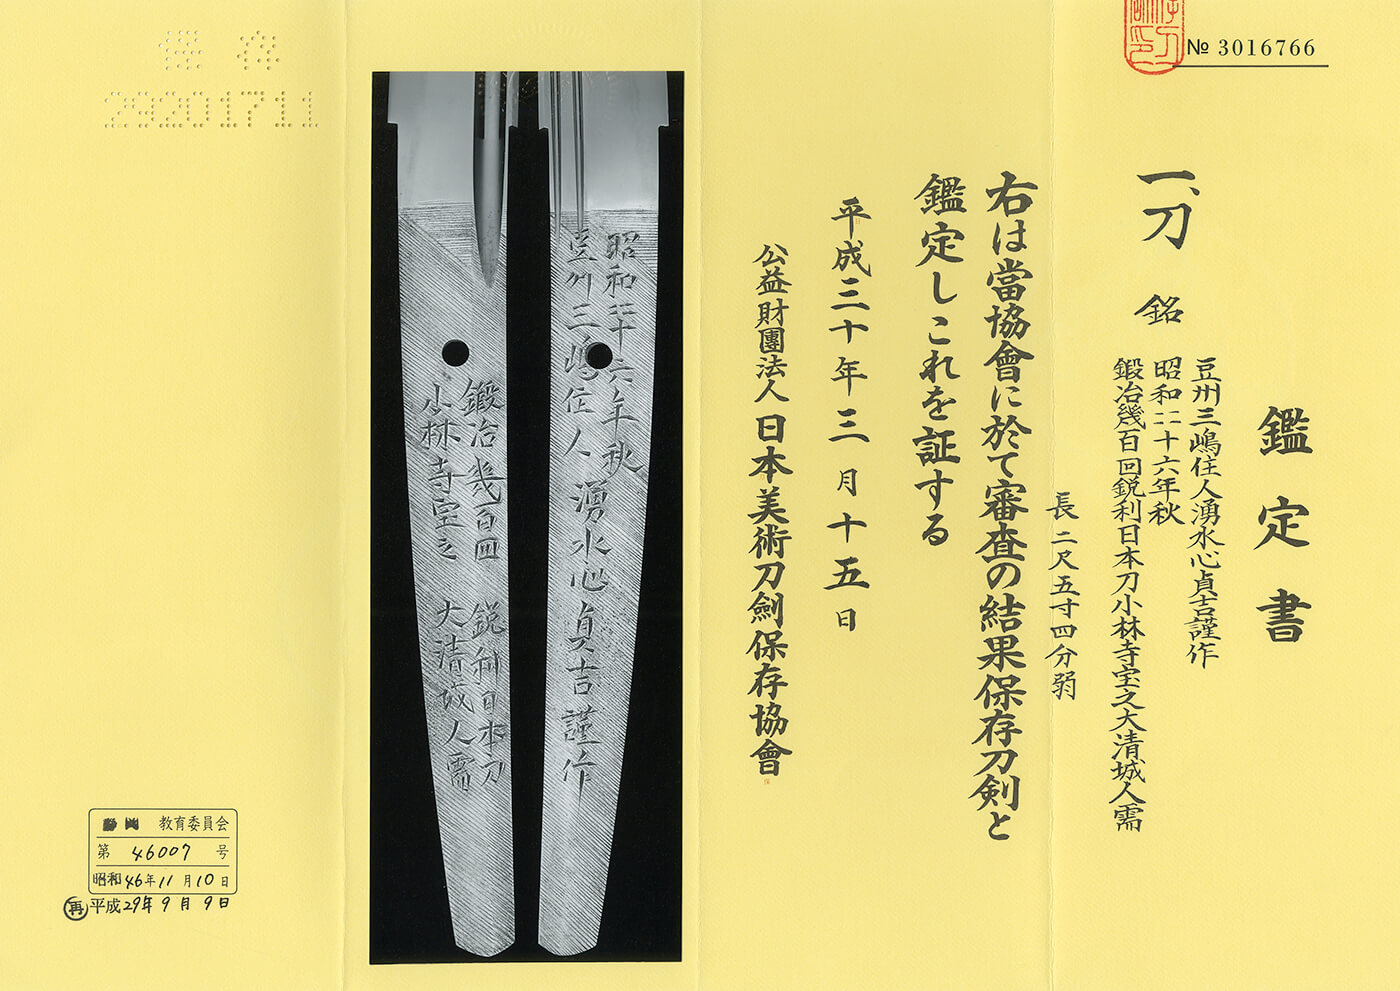 № 3016766
鑑定書
一、刀 銘
豆州三嶋住人湧水心貞吉謹作
昭和亖十六年秋
鍛冶幾百回鋭利日本刀小林寺宝之大清城人需
長二尺五寸四分弱
右は當協會に於て審査の結果保存刀剣と
鑑定しこれを証する
平成三十年三月十五日
公益財團法人日本美術刀劍保存協會
昭和亖十六年秋
豆州三嶋住人 湧水心貞吉謹作
鍛冶幾百回 鋭利日本刀
小林寺宝之 大清城人需
保存
29201711
静岡 教育委員会
第 46007 号
昭和46年11月10日
再 平成29年9月9日